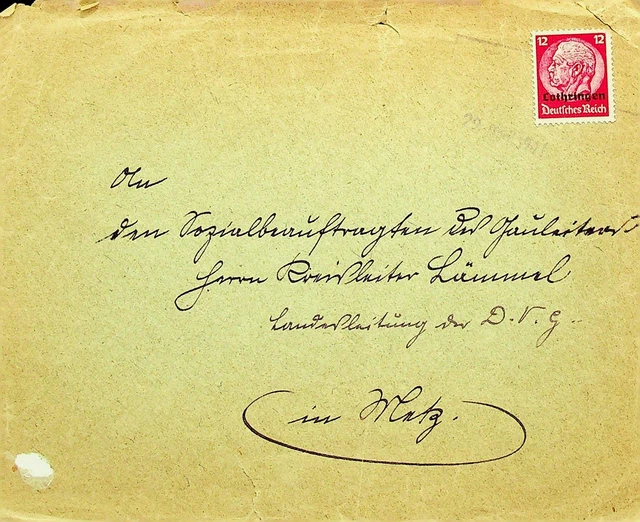 12 12
Lothringen
Deutsches Reich
An
den Sozialbeauftragten des Gauleiters
Herrn Kreisleiter Lämmel
Landesleitung der D.V.G.
in Metz.